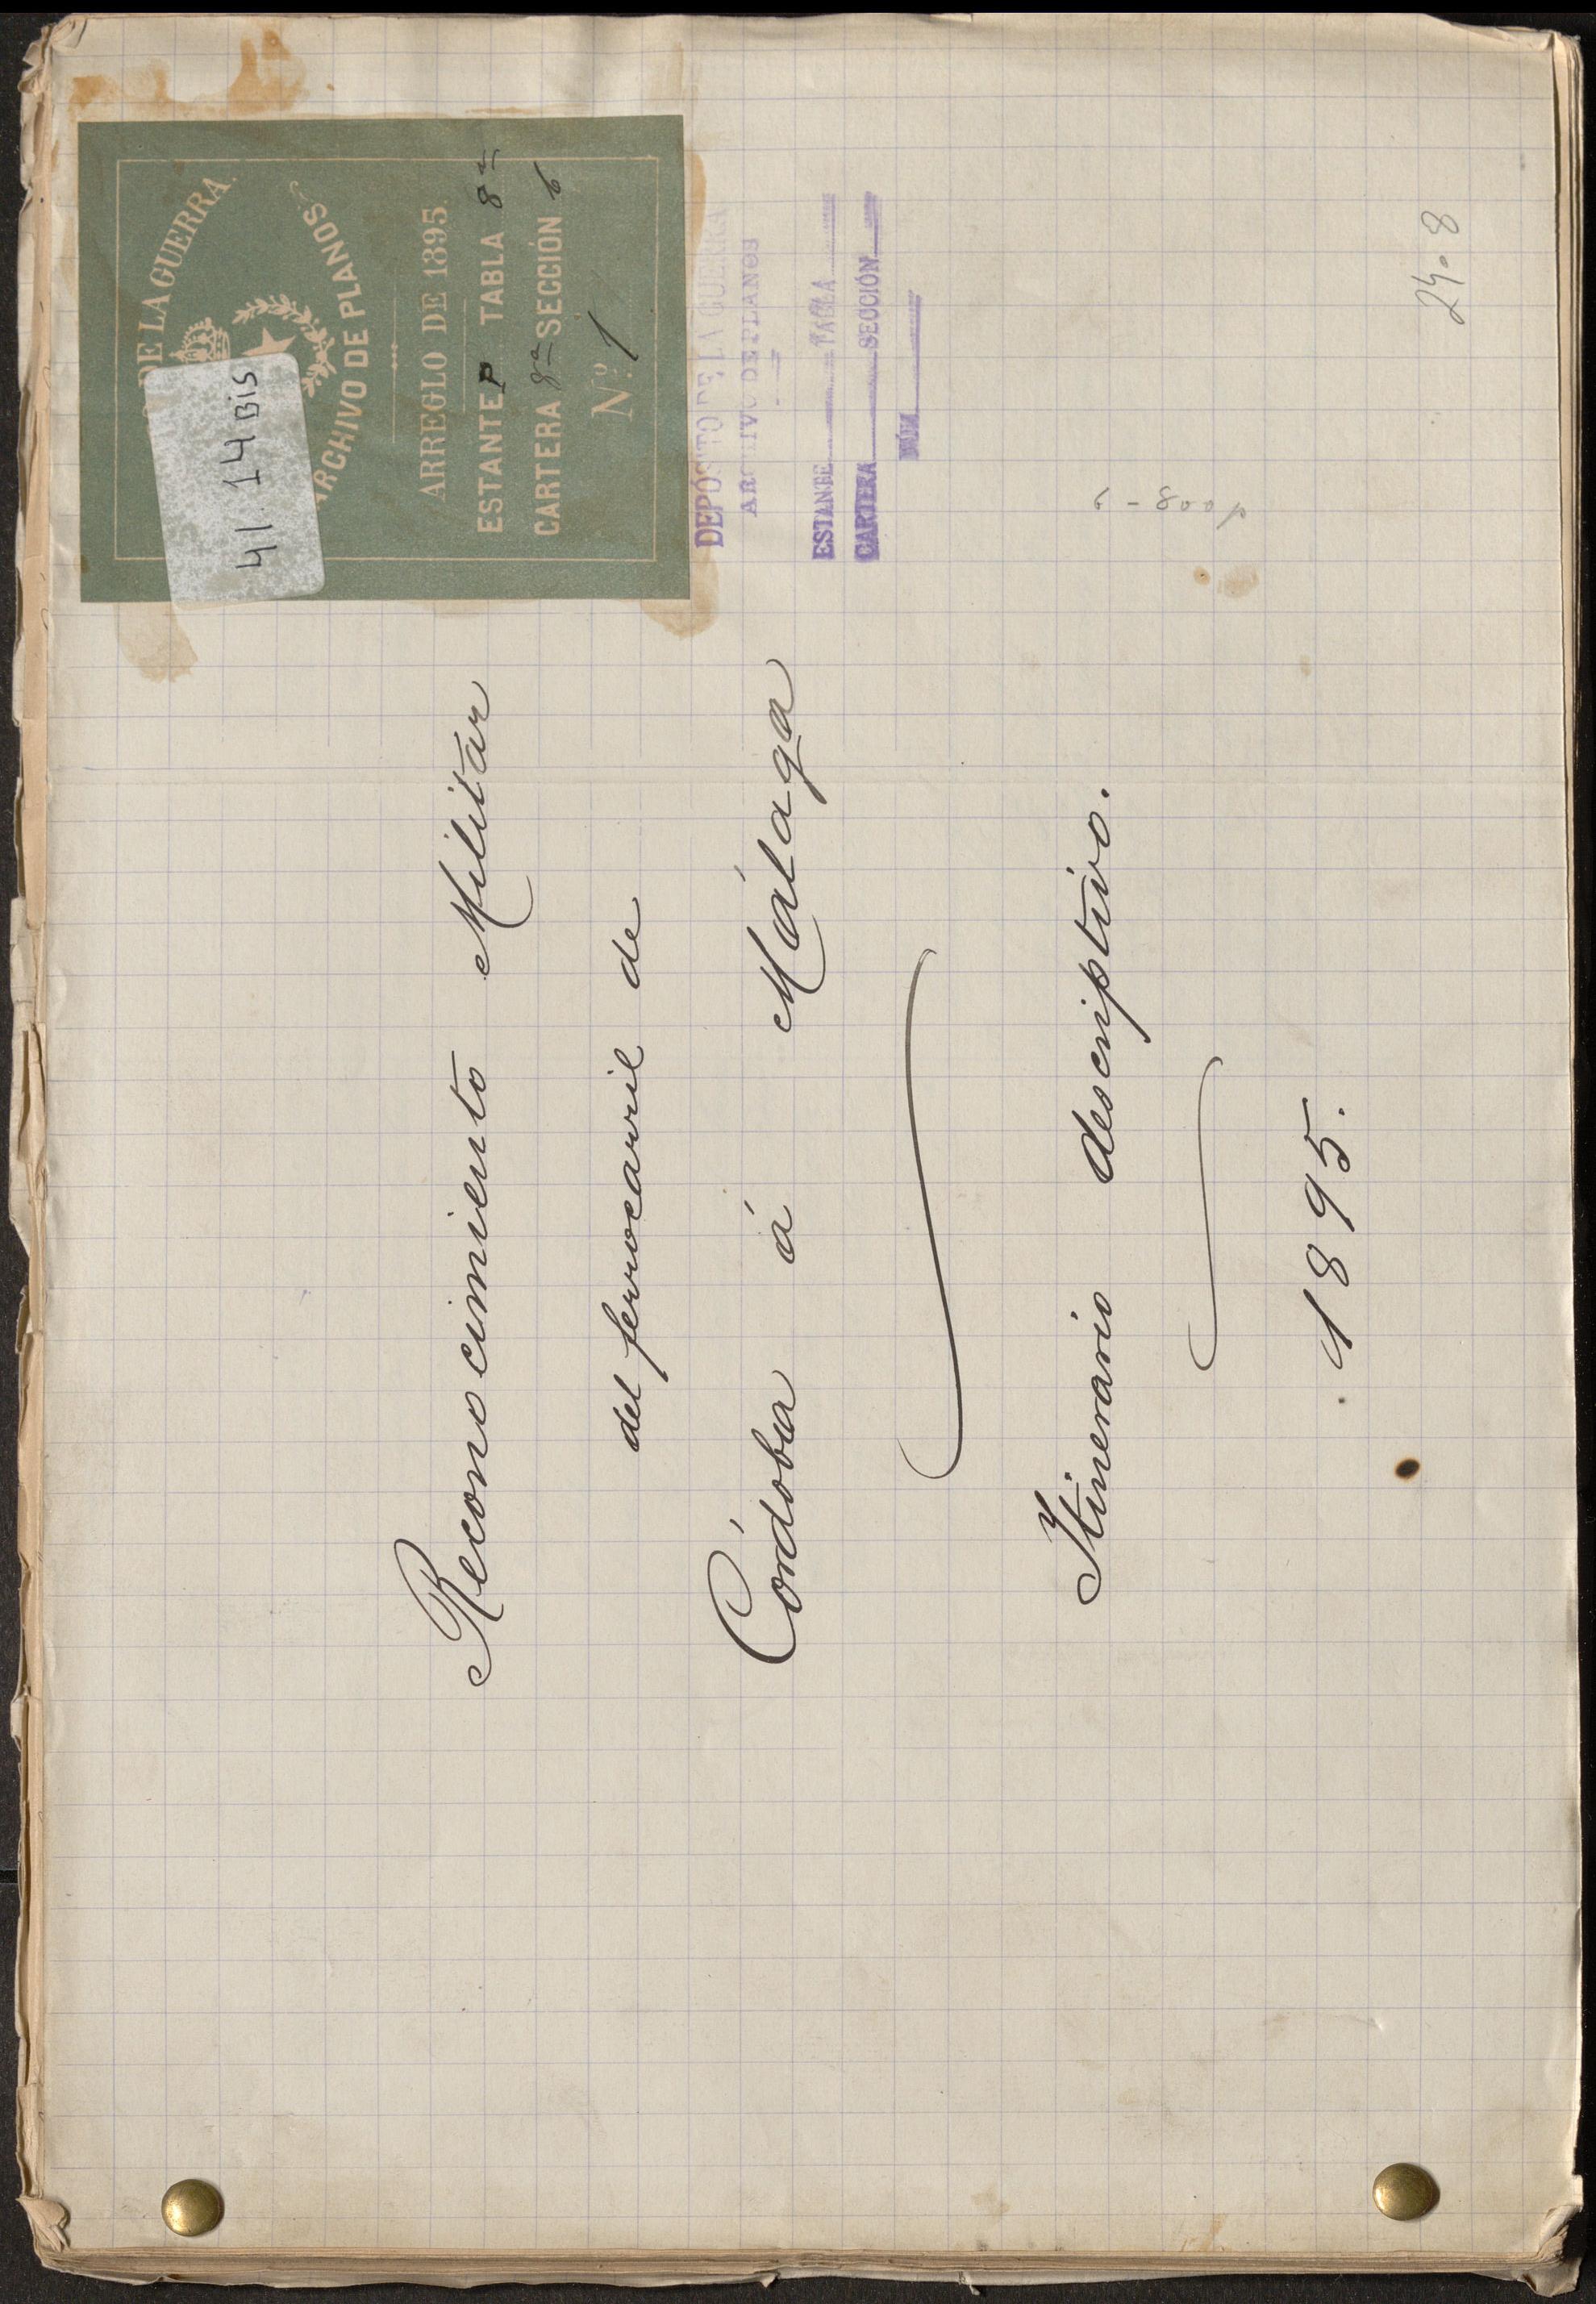 DE LA GUERRA.
ARCHIVO DE PLANOS
41.14 BIS
ARREGLO DE 1895
ESTANTE P TABLA 8ª
CARTERA 8ª SECCIÓN 6
Nº. 1
DEPÓSITO DE LA GUERRA
ARCHIVO DE PLANOS
ESTANTE TABLA
CARTERA SECCIÓN
NÚM
Reconocimiento Militar
del ferrocarril de
Córdoba á Málaga
Itinerario descriptivo.
1895.
24-8